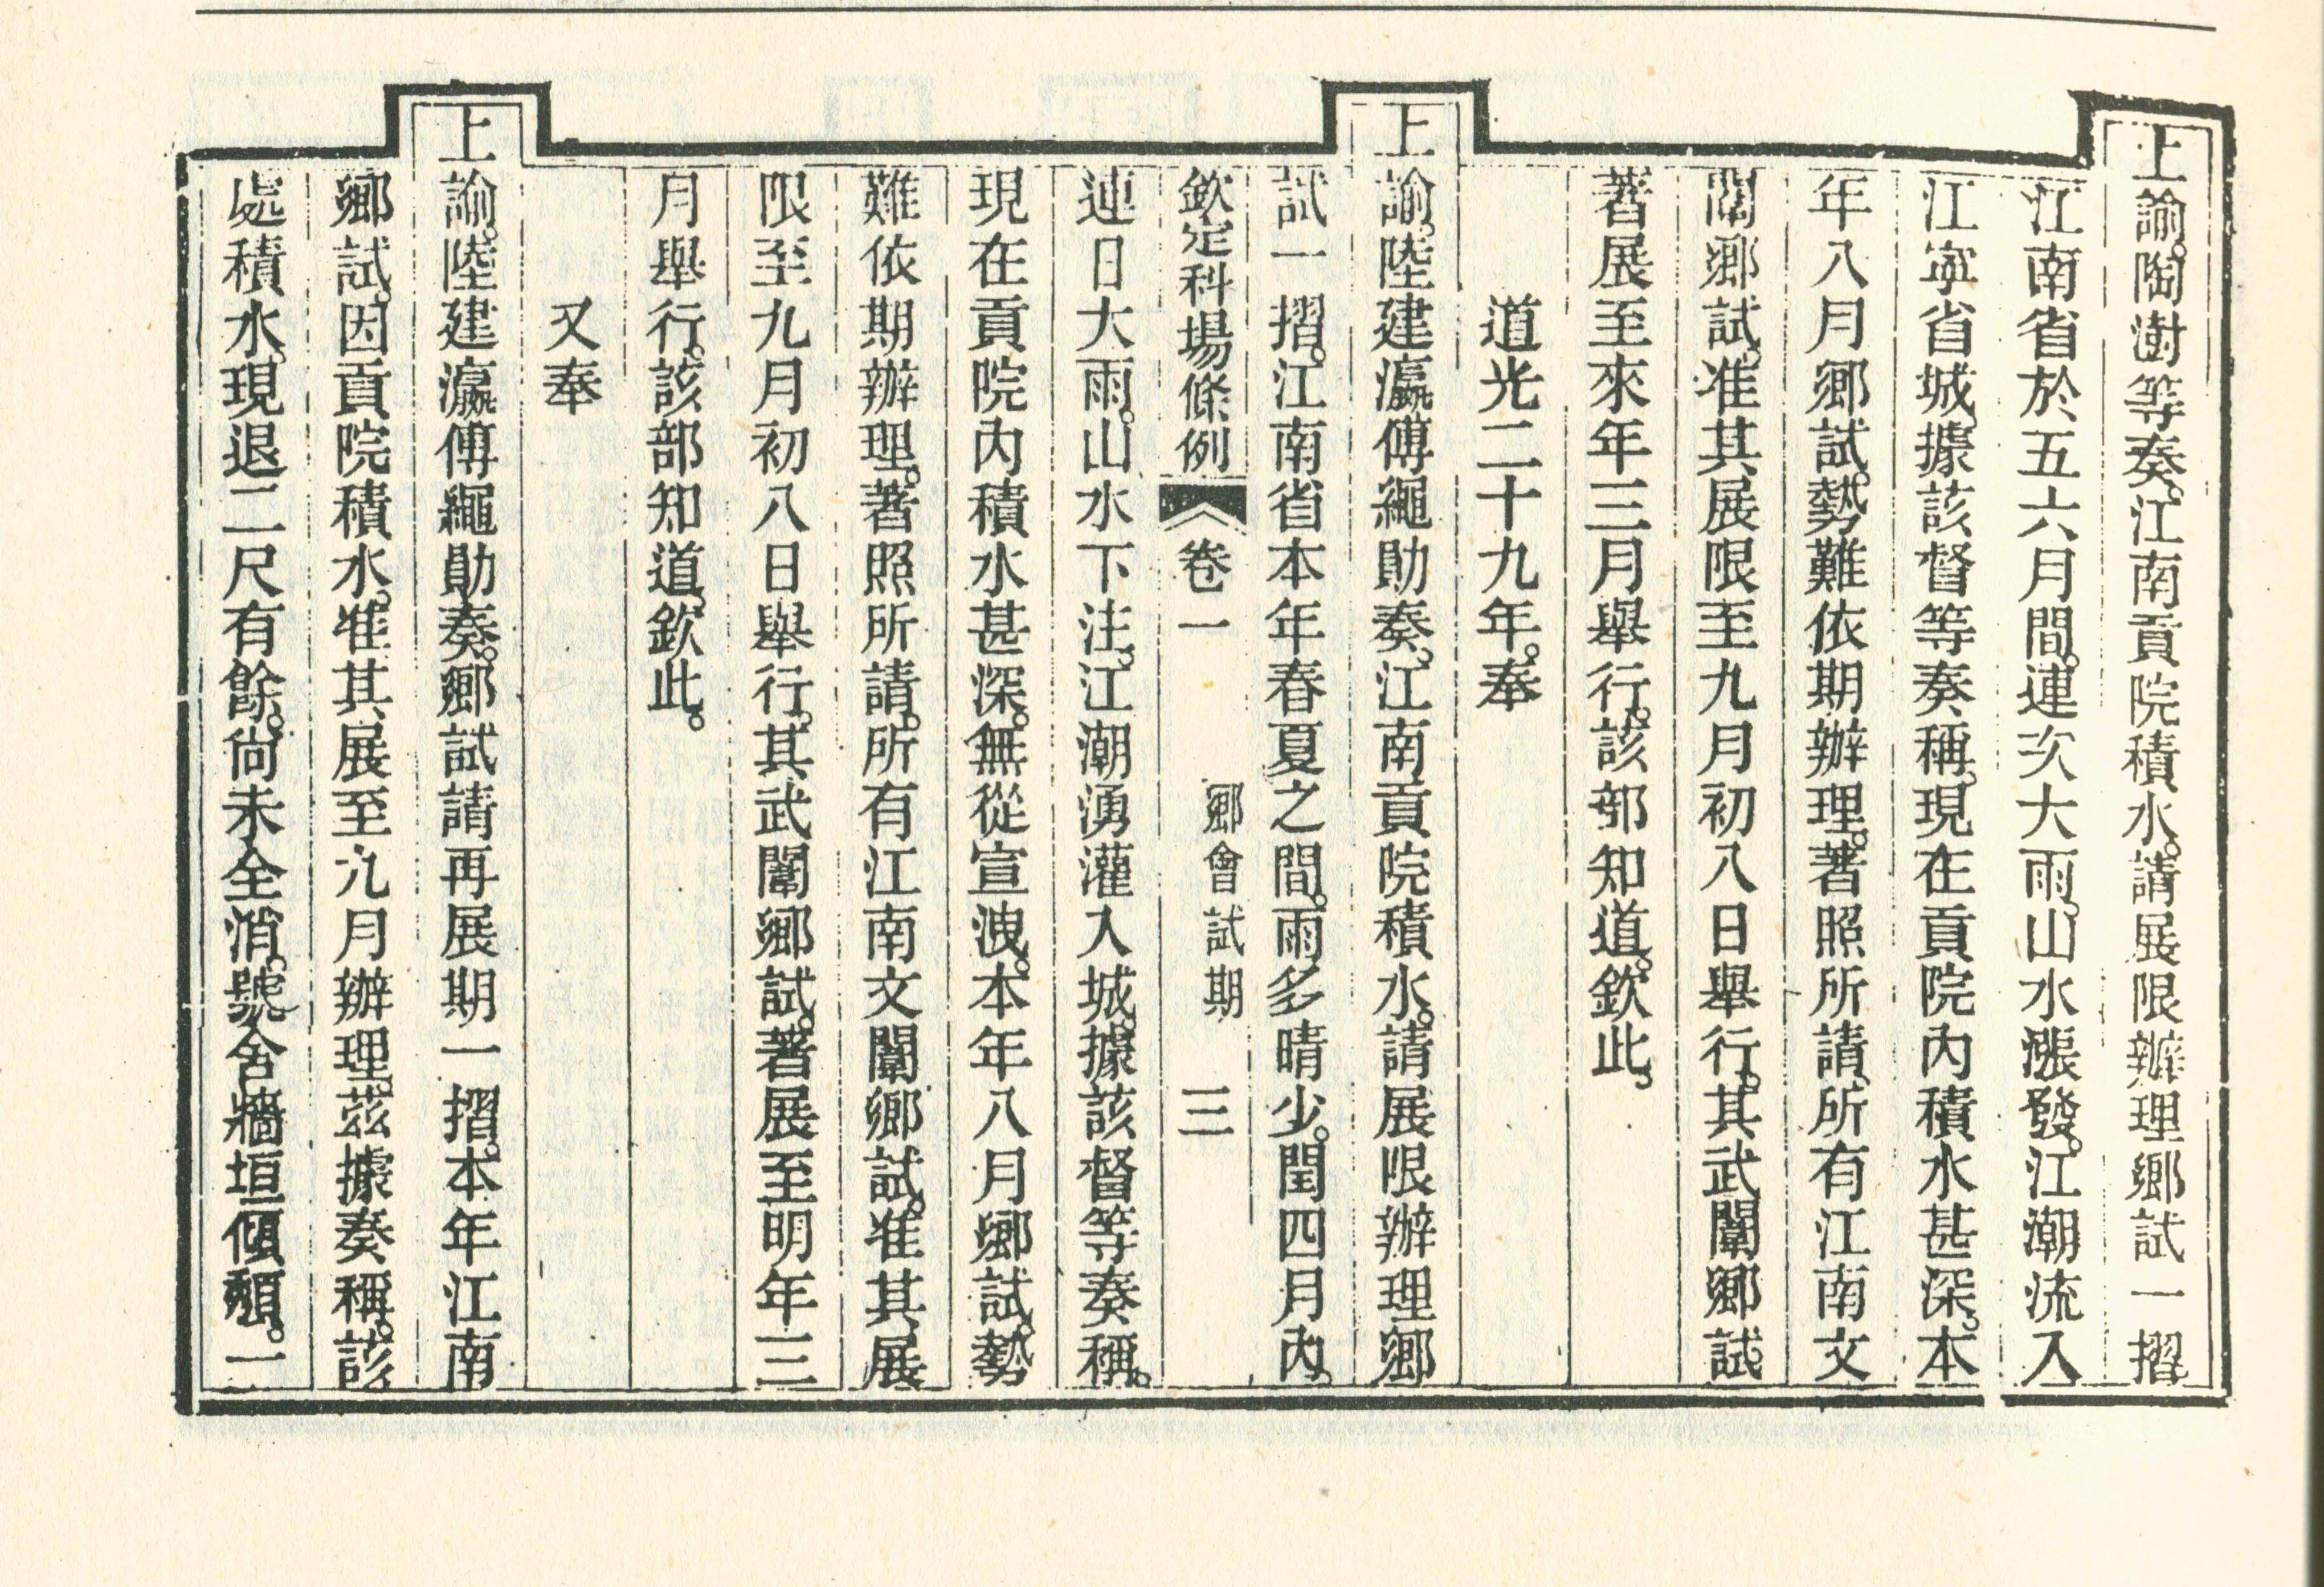 上諭。陶澍等奏。江南貢院積水。請展限辦理鄉試一摺
江南省於五六月間。連次大雨。山水漲發。江潮流入
江寧省城。據該督等奏稱。現在貢院內積水甚深。本
年八月鄉試。勢難依期辦理。著照所請。所有江南文
闈鄉試。准其展限至九月初八日舉行。其武闈鄉試
著展至來年三月舉行。該部知道。欽此。
道光二十九年。奉
上諭。陸建瀛傅繩勛奏。江南貢院積水。請展限辦理鄉
試一摺。江南省本年春夏之間。雨多晴少。閏四月內。
欽定科場條例 卷一 鄉會試期 三
連日大雨。山水下注。江潮湧灌入城。據該督等奏稱。
現在貢院內積水甚深。無從宣洩。本年八月鄉試。勢
難依期辦理。著照所請。所有江南文闈鄉試。准其展
限至九月初八日舉行。其武闈鄉試。著展至明年三
月舉行。該部知道。欽此。
又奉
上諭。陸建瀛傅繩勛奏。鄉試請再展期一摺。本年江南
鄉試。因貢院積水。准其展至九月辦理。茲據奏稱。該
處積水。現退二尺有餘。尚未全消。號舍牆垣傾頹。一